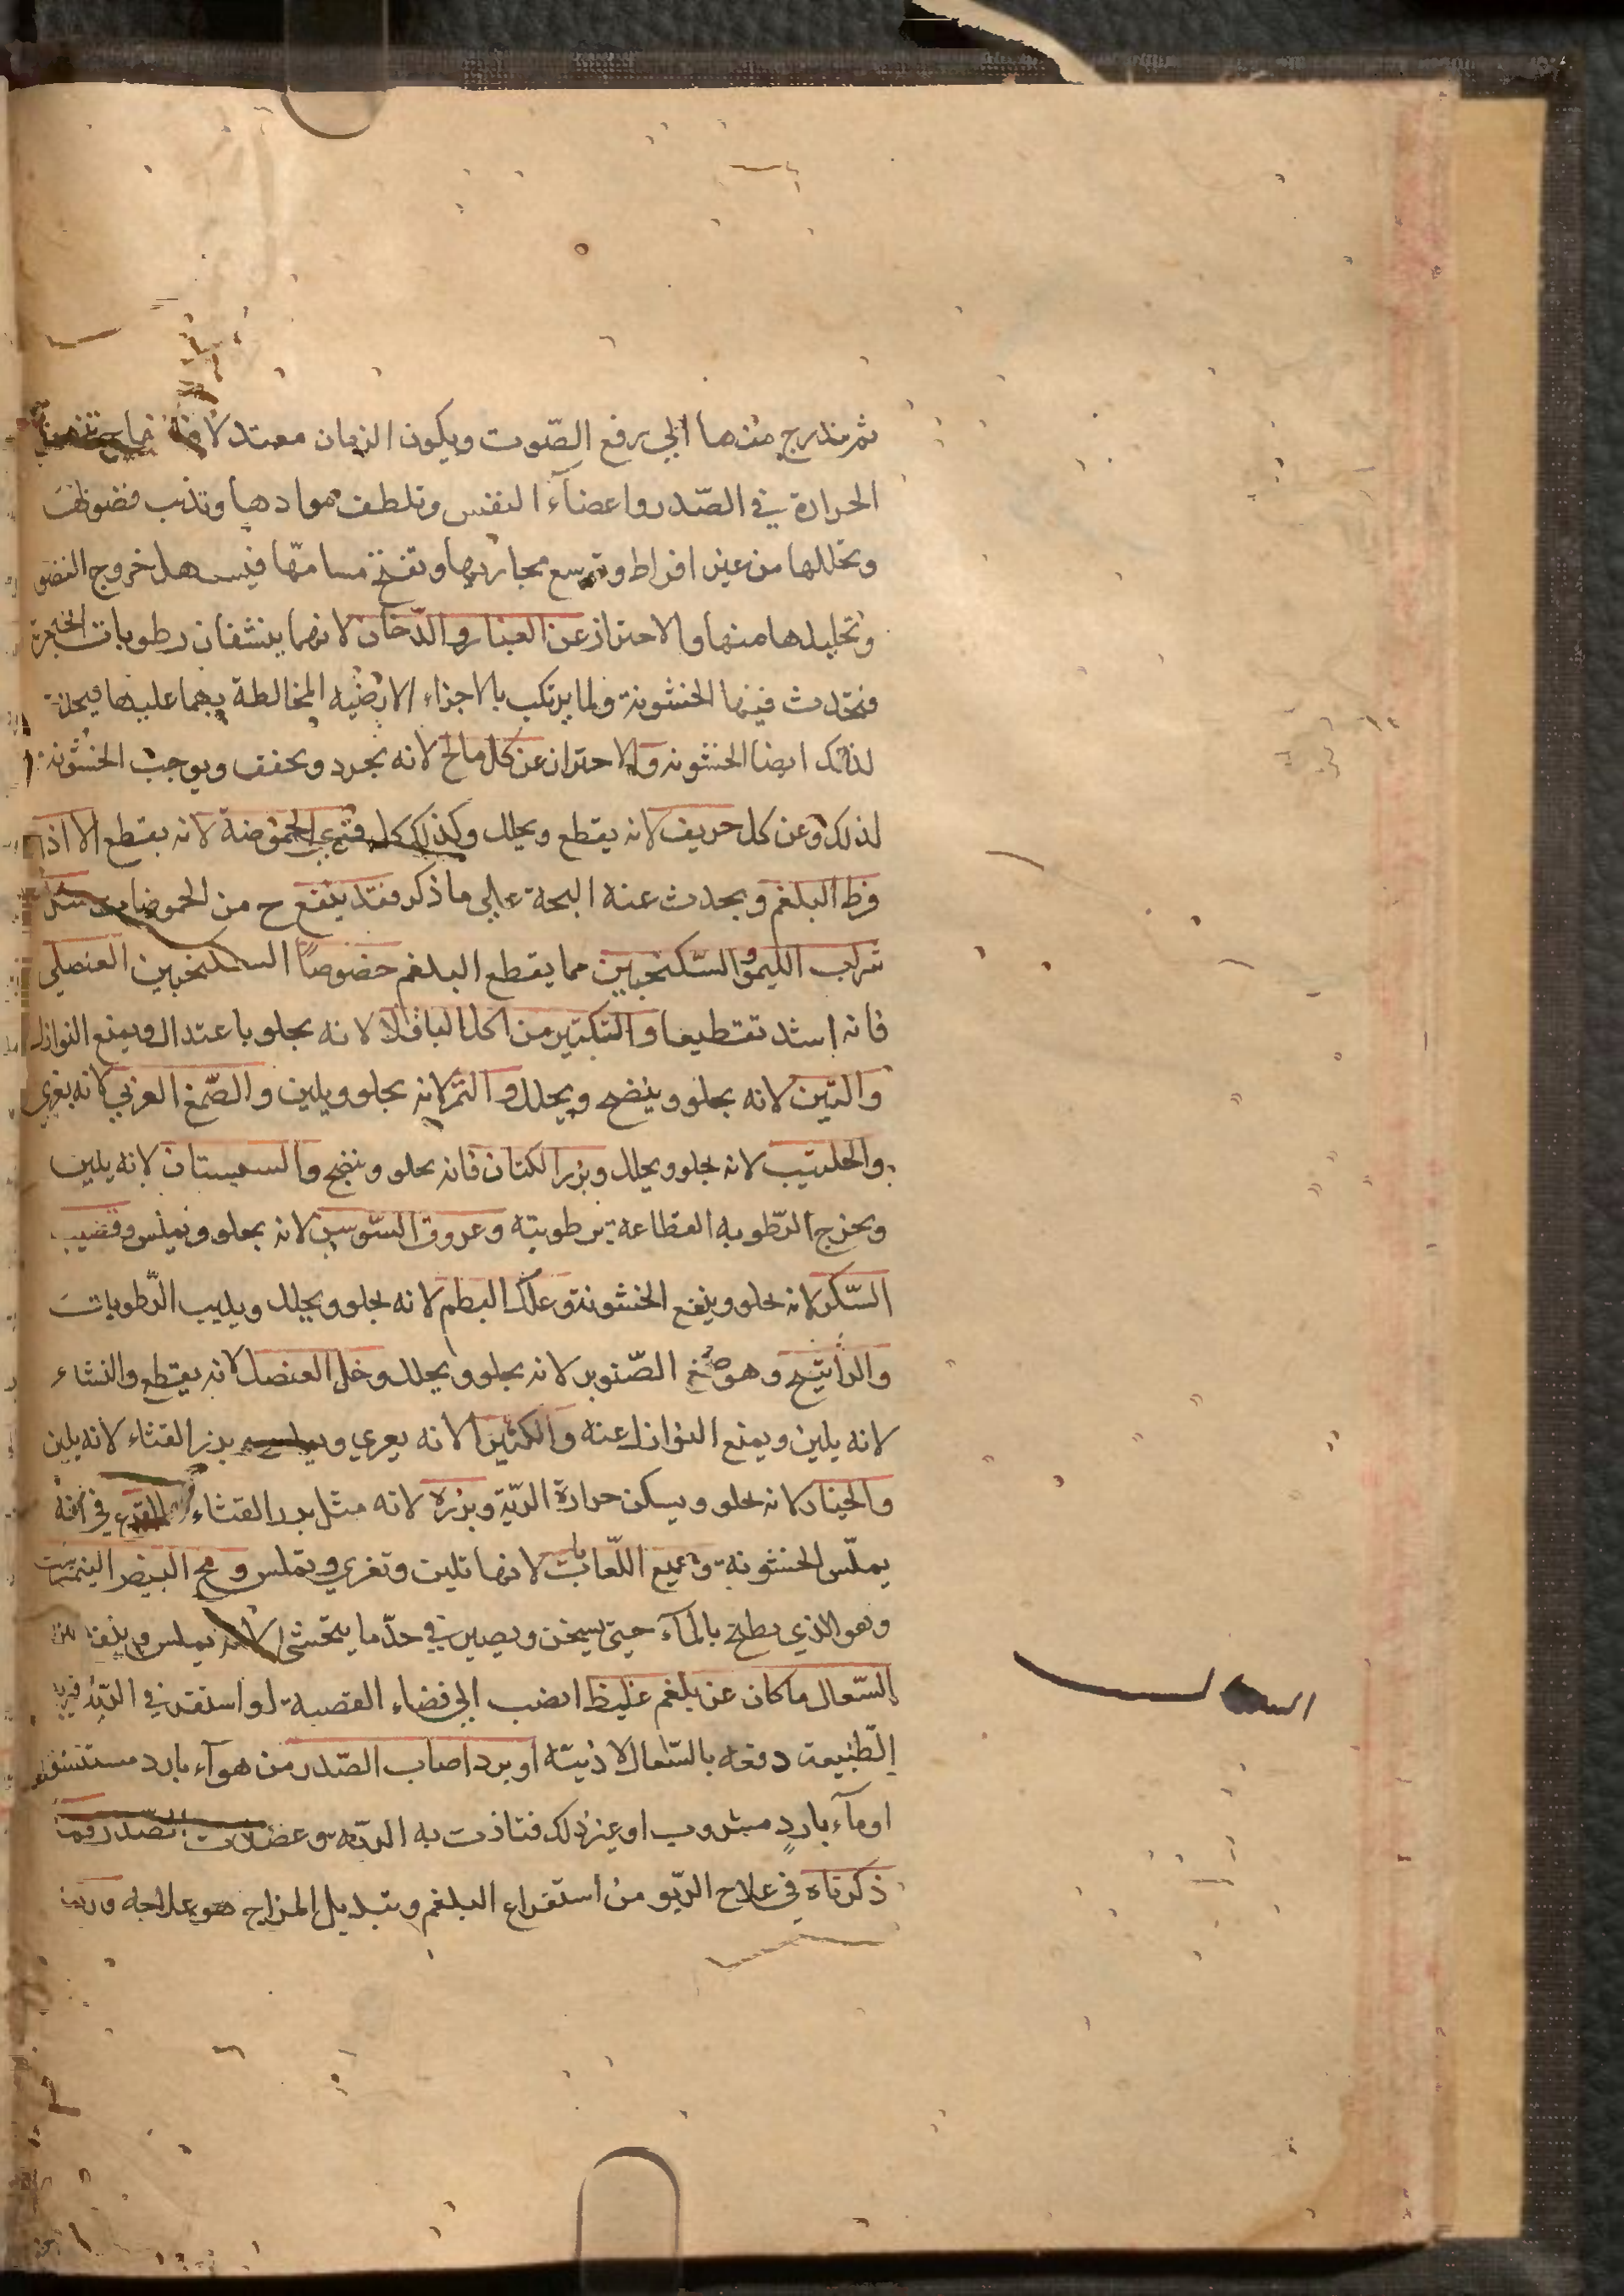 ثم يتدرج منها الي رفع الصّوت ويكون الزمان معتدلا
الحرارة في الصّدر واعضآء النفس وتلطف موادها وتذيب فضولها
وتحللها من غير افراط وتوسع مجاريها وتفتح مسامّها فيسهل خروج الفضول
وتحليلها منها والاحتراز عن الغبار والدّخان لانهما ينشفان رطوبات الحنجرة
فتحدث فيها الخشونة ولما يرتكب بالاجزاء الارضيه المخالطة بهما عليها فيحدث
لذلك ايضا الخشونه والاحتراز عن كل مالح لانه يجرد ويجفف ويوجب الخشونة
لذلك وعن كل حريف لانه يقطع ويحلل وكذلك كل قوي الحموضة لانه يقطع الا اذا
فرط البلغم ويحدث عنه البحة علي ما ذكر فقد ينفع ح من الحموضات مثل
شراب الليمو والسّكنجبين مما يقطع البلغم خصوصًا السكنجبين العنصلي
فانه اشد تقطيعا والتكثير من اكل الباقلا لانه يجلو باعتدال ويمنع النوازل
والتين لانه يجلو وينضج ويحلل والتمر لانه يجلو ويلين والصّمغ العربي لانه يغري
والحلتيت لانه يجلو ويحلل وبزر الكتان فانه يجلو وينضج والسبستان لانه يلين
ويخرج الرّطوبه القطاعة برطوبته وعروق السّوس لانه يجلو ويملس وقضيب
السّكر لانه يجلو وينفع الخشونة وعلك البطم لانه يجلو ويحلل ويذيب الرّطوبات
والراتينج وهو صمغ الصّنوبر لانه يجلو ويحلل وخل العنصل لانه يقطع والنشاء
لانه يلين ويمنع النوازل عنه والكثيرا لانه يغري وبزر القثاء لانه يلين
والخيار لانه يجلو ويسكن حرارة الريّة وبزره لانه مثل بزر القثاء القرع في انه
يملّس الخشونة وجميع اللّعابات لانها تلين وتغري وتملس ومح البيض النيمبرشت
وهو الذي يطبخ بالمآء حتي يسخن ويصير في حدّ ما يتحسّى لانه يملس
السّعال ما كان عن بلغم غليظ انصب الي فضاء القصبة او استقر في الريّة
الطّبيعة دفعه بالسّعال لاذيته او برد اصاب الصّدر من هوآء بارد مستنشق
او مآء باردٍ مشروب او غير ذلك فتاذت به الريّة وعضلات الصّدر فما
ذكرناه في علاج الرّبو من استفراغ البلغم وتبديل المزاج هو علاجه
السعال